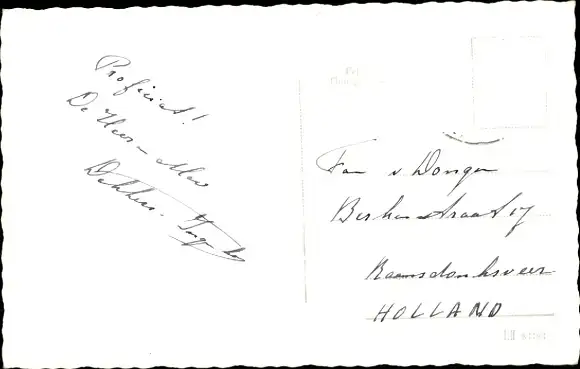 Proficiat!
De Heer - Mevr
Dekkers.
Fam v Dongen
straat 17
Raamsdonksveer
HOLLAND